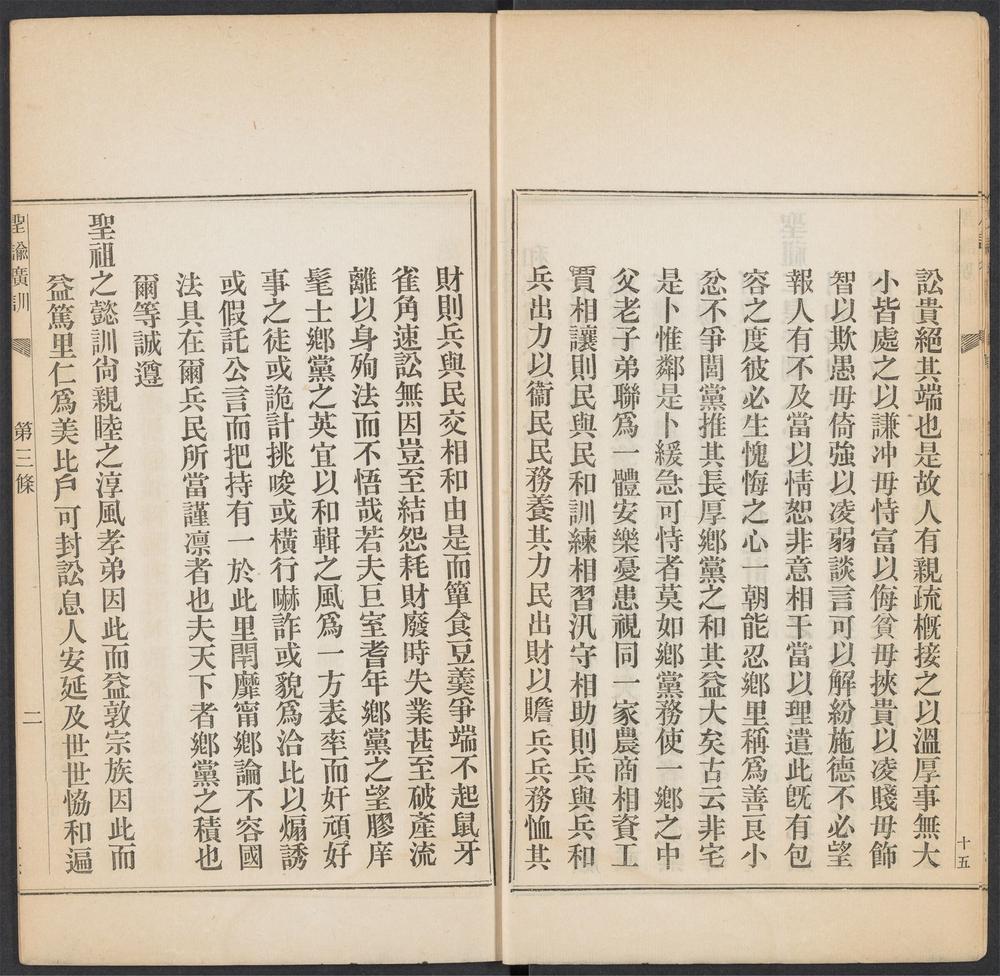 訟貴絕其端也是故人有親疏概接之以溫厚事無大
小皆處之以謙冲毋恃富以侮貧毋挾貴以凌賤毋飾
智以欺愚毋倚強以凌弱談言可以解紛施德不必望
報人有不及當以情恕非意相干當以理遣此旣有包
容之度彼必生愧悔之心一朝能忍鄉里稱爲善良小
忿不爭閭黨推其長厚鄉黨之和其益大矣古云非宅
是卜惟鄰是卜緩急可恃者莫如鄉黨務使一鄉之中
父老子弟聯爲一體安樂憂患視同一家農商相資工
賈相讓則民與民和訓練相習汛守相助則兵與兵和
兵出力以衞民民務養其力民出財以贍兵兵務恤其
十五
財則兵與民交相和由是而簞食豆羹爭端不起鼠牙
雀角速訟無因豈至結怨耗財廢時失業甚至破產流
離以身殉法而不悟哉若夫巨室耆年鄉黨之望膠庠
髦士鄉黨之英宜以和輯之風爲一方表率而奸頑好
事之徒或詭計挑唆或橫行嚇詐或貌爲洽比以煽誘
或假託公言而把持有一於此里閈靡甯鄉論不容國
法具在爾兵民所當謹凛者也夫天下者鄉黨之積也
爾等誠遵
聖祖之懿訓尙親睦之淳風孝弟因此而益敦宗族因此而
益篤里仁爲美比戶可封訟息人安延及世世恊和遍
聖諭廣訓 第三條 二